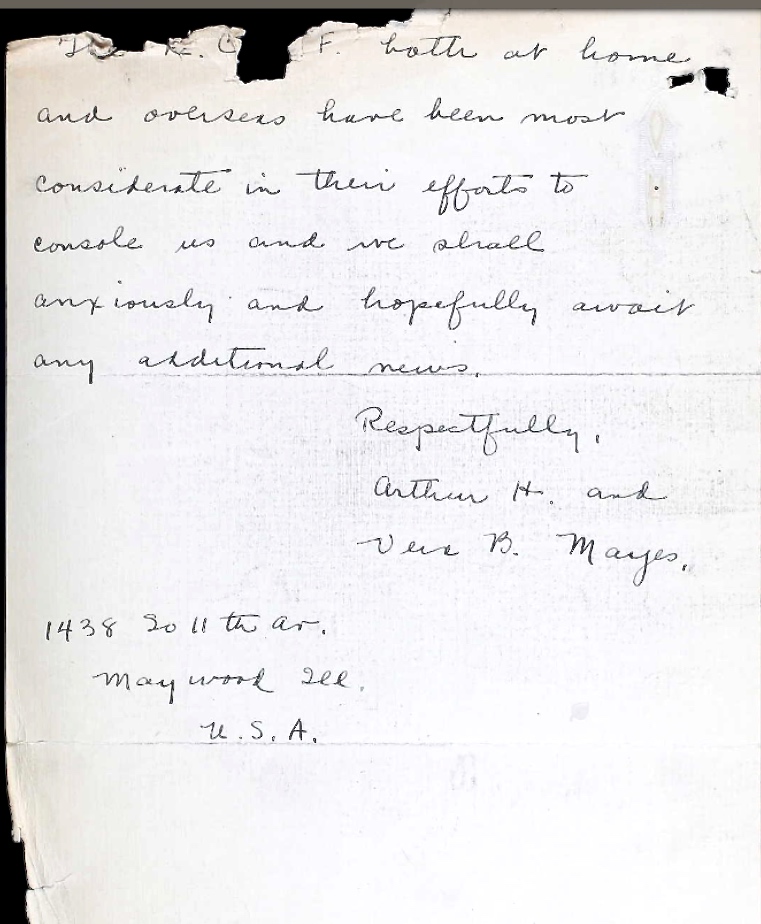 The R. C. A. F. both at home
and overseas have been most
considerate in their efforts to
console us and we shall
anxiously and hopefully await
any additional news.
Respectfully,
Arthur H. and
Vera B. Mayes.
1438 So 11th Av.
Maywood Ill.
U.S.A.